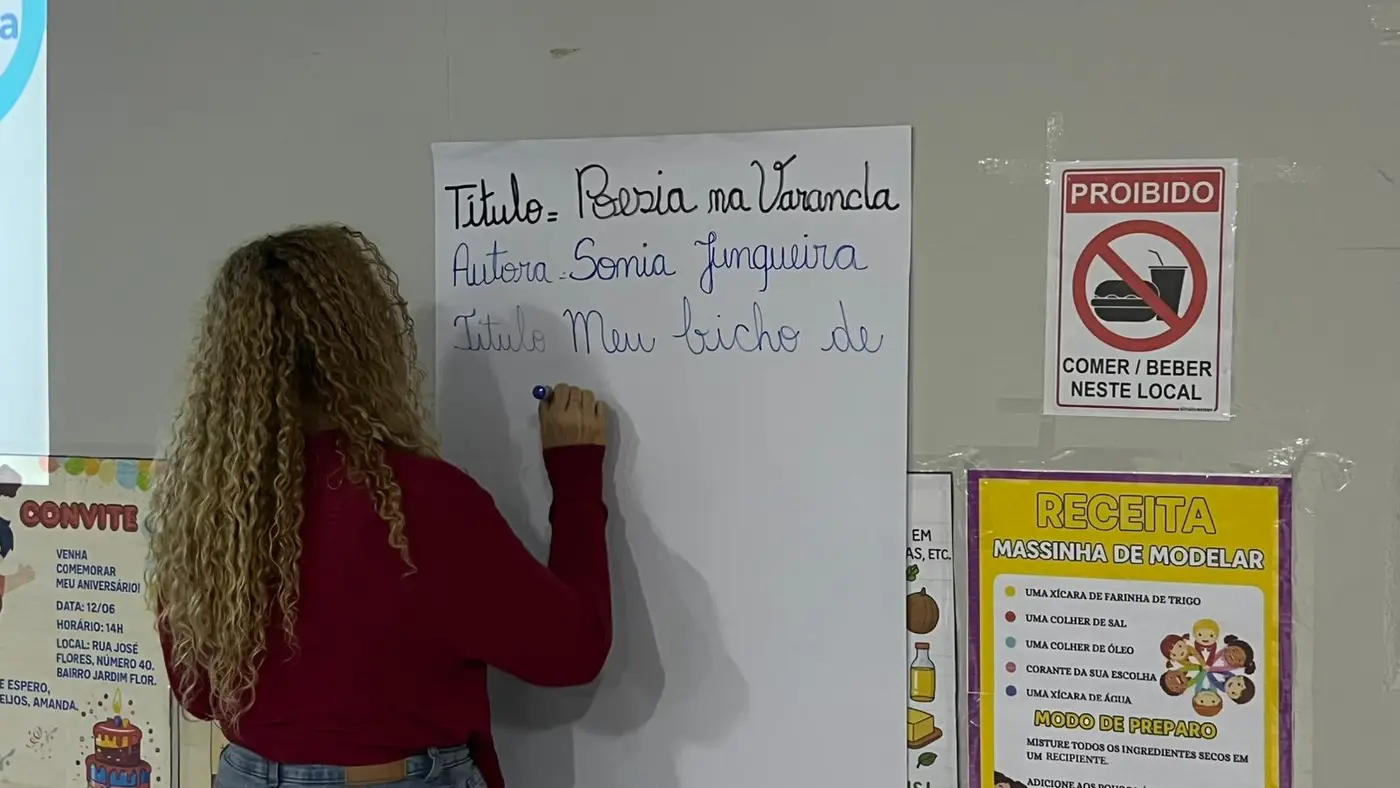 a
Título = Poesia na Varanda
Autora = Sonia Junqueira
Título Meu bicho de
PROIBIDO
COMER / BEBER
NESTE LOCAL
CONVITE
VENHA
COMEMORAR
MEU ANIVERSÁRIO!
DATA: 12/06
HORÁRIO: 14H
LOCAL: RUA JOSÉ
FLORES, NÚMERO 40.
BAIRRO JARDIM FLOR.
E ESPERO,
EIJOS, AMANDA.
EM
AS, ETC.
RECEITA
MASSINHA DE MODELAR
UMA XÍCARA DE FARINHA DE TRIGO
UMA COLHER DE SAL
UMA COLHER DE ÓLEO
CORANTE DA SUA ESCOLHA
UMA XÍCARA DE ÁGUA
MODO DE PREPARO
MISTURE TODOS OS INGREDIENTES SECOS EM
UM RECIPIENTE.
ADICIONE AOS